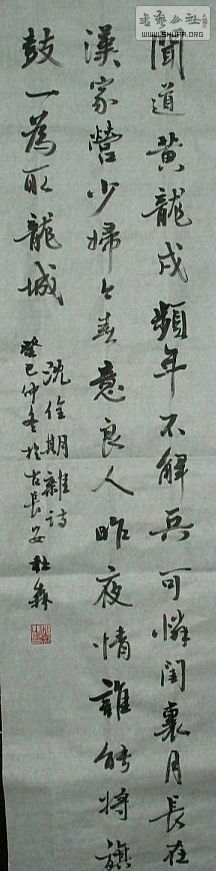 聞道黃龍戍頻年不解兵可憐閨裏月長在
漢家營少婦今春意良人昨夜情誰能將旗
鼓一為取龍城
沈佺期雜詩
癸巳仲冬於古長安杜森
書藝公社
WWW.SHUFA.ORG